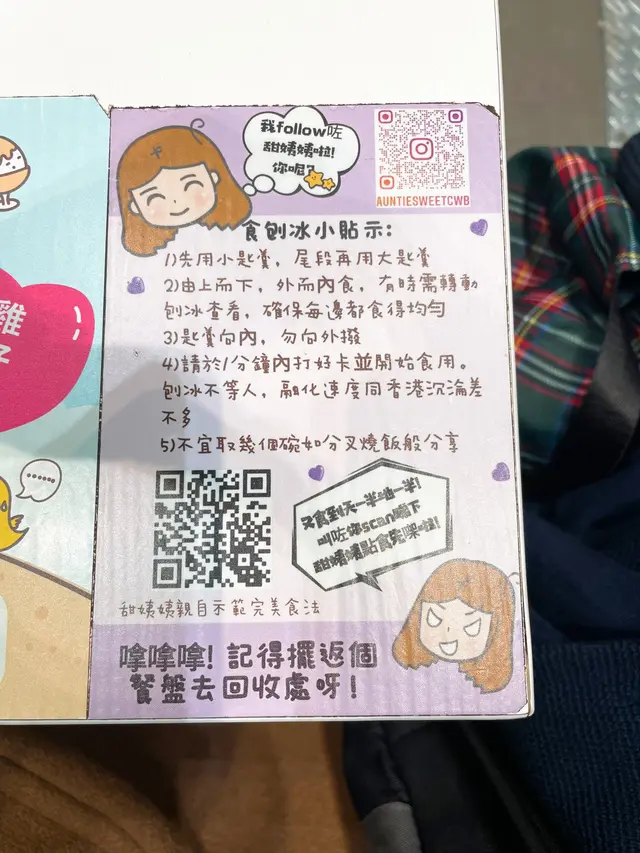 我follow咗
甜姨姨啦!
你呢?
AUNTIESWEETCWB
食刨冰小貼示:
1)先用小匙羹，尾段再用大匙羹
2)由上而下，外而內食，有時需轉動
刨冰查看，確保每邊都食得均勻
3)匙羹向內，勿向外撥
4)請於1分鐘內打好卡並開始食用。
刨冰不等人，融化速度同香港沉淪差
不多
5)不宜取幾個碗如分叉燒飯般分享
又食到天一半地一半!
叫咗你scan嚟下
甜姨姨點食先㗎啦!
甜姨姨親自示範完美食法
嗱嗱嗱! 記得擺返個
餐盤去回收處呀!
雞
子
......